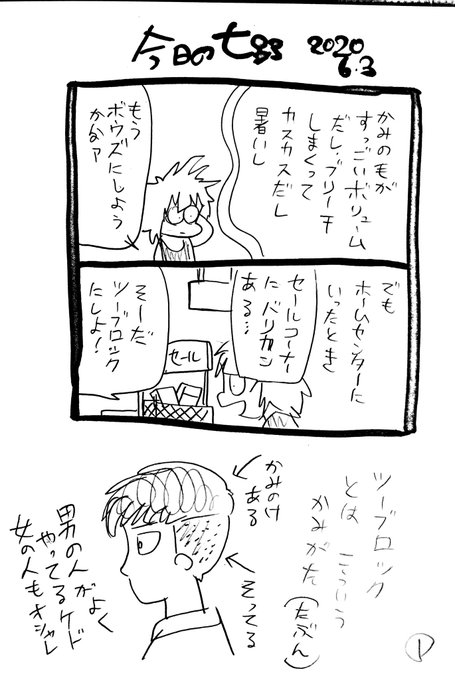 今日の七器 2020
6.3
かみのもが
すっごいボリューム
だし、ブリーチ
しまくって
カスカスだし
暑いし
もう
ボウズにしよう
かなァ
でも
ホームセンターに
いったとき
セールコーナー
に バリカン
ある…
セール
そーだ
ツーブロック
にしよ!
ツーブロック
とは こういう
かみがた
(たぶん)
かみのけ
ある
そってる
男の人がよく
やってるケド
女の人もオシャレ
1